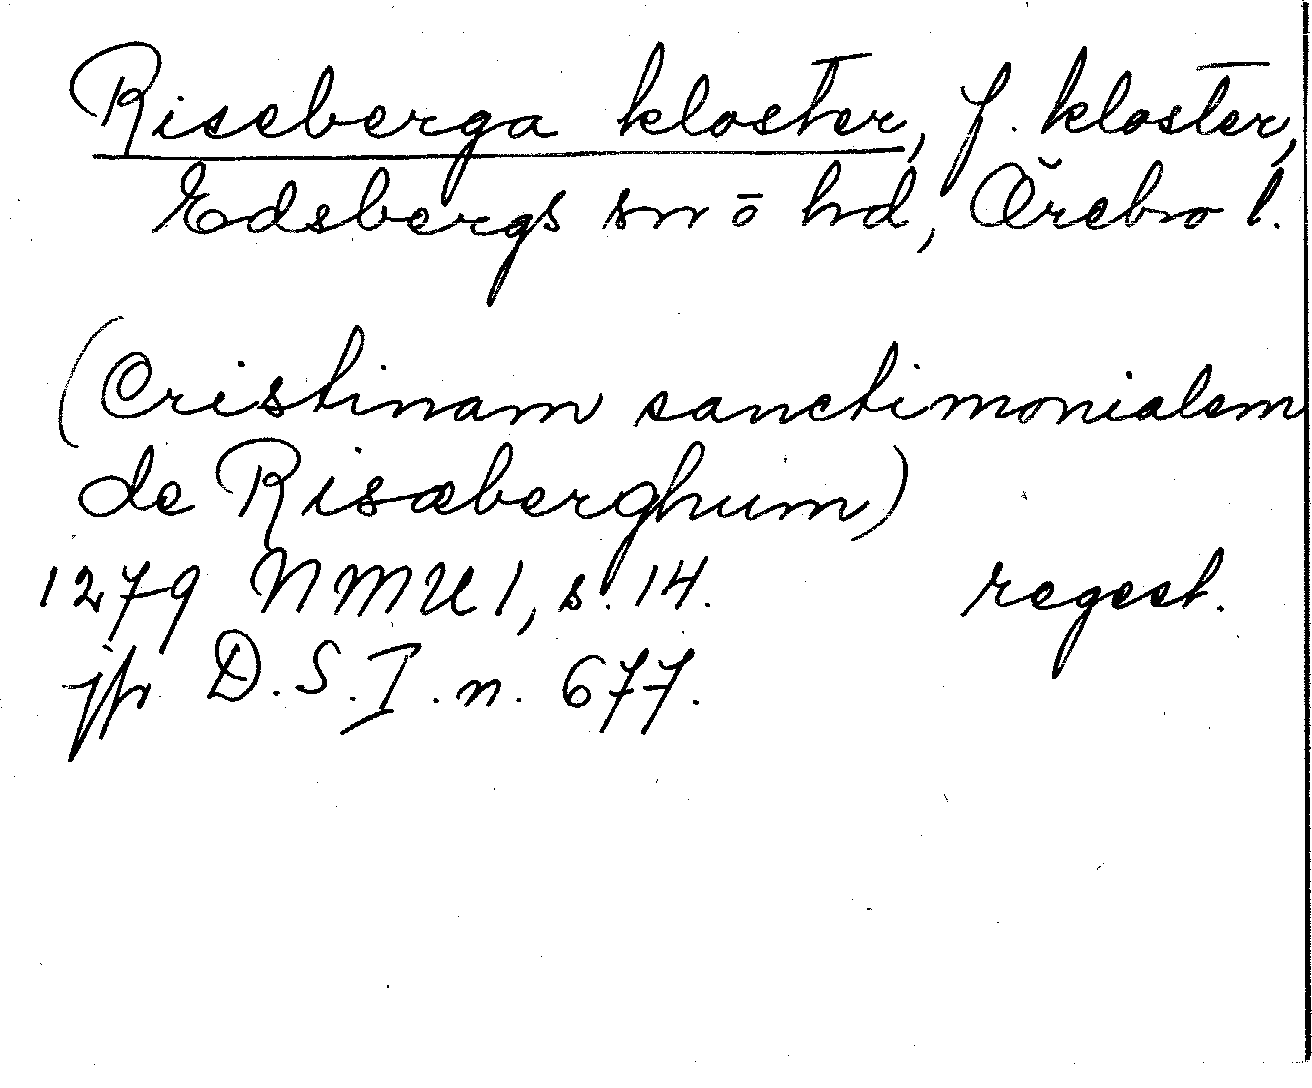 Riseberga kloster, f. kloster,
Edsbergs sn o hd, Örebro l.
(Cristinam sanctimonialem
de Risæberghum)
1279 NMU 1, s. 14. regest.
jfr D.S. I. n. 677.